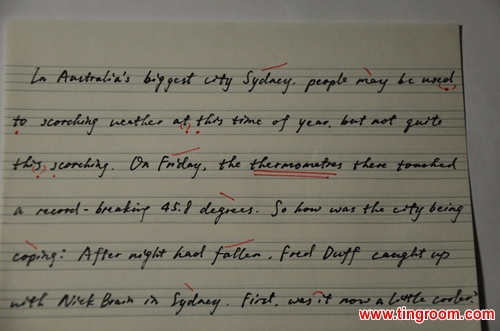 In Australia's biggest city Sydney, people may be used
to scorching weather at this time of year, but not quite
this scorching. On Friday, the thermometres there touched
a record-breaking 45.8 degrees. So how was the city being
coping? After night had fallen, Fred Duff caught up
with Nick Brain in Sydney. First, was it now a little cooler?
www.tingroom.com